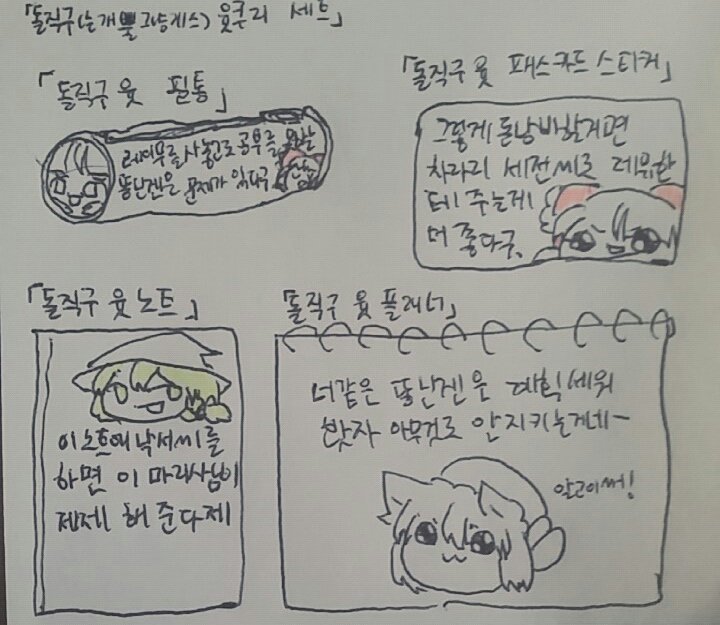 「돌직구(는개뿔 그냥게스) 윳쿠리 세트」
「돌직구 윳 필통」
레이무를 사놓고도 공부를 안할
똥난젠은 문제가 있다구
「돌직구 윳 패스카드 스티커」
그렇게 돈낭비할거면
차라리 세전씨로 레이무한
테 주는게
더 좋다구.
「돌직구 윳 노트」
이 노트에 낙서씨를
하면 이 마리사님이
제제 해 준다제
「돌직구 윳 플래너」
너같은 똥난젠은 계획세워
봤자 아무것도 안지키는거네~
알고이써!